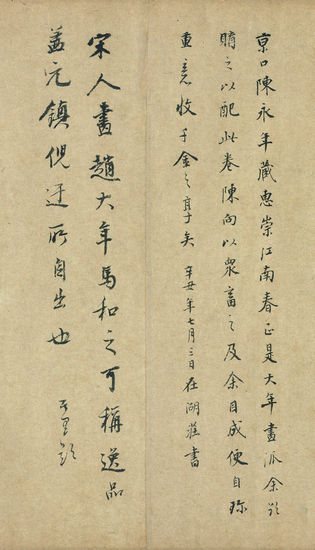 京口陳永年藏惠崇江南春正是大年畫派余欲
購之以配此卷陳向以眾畜之及余目成便自珍
重意收千金之享矣辛丑年七月三日在湖莊書
宋人畫趙大年馬和之可稱逸品
蓋元鎮倪迂所自出也 其昌題